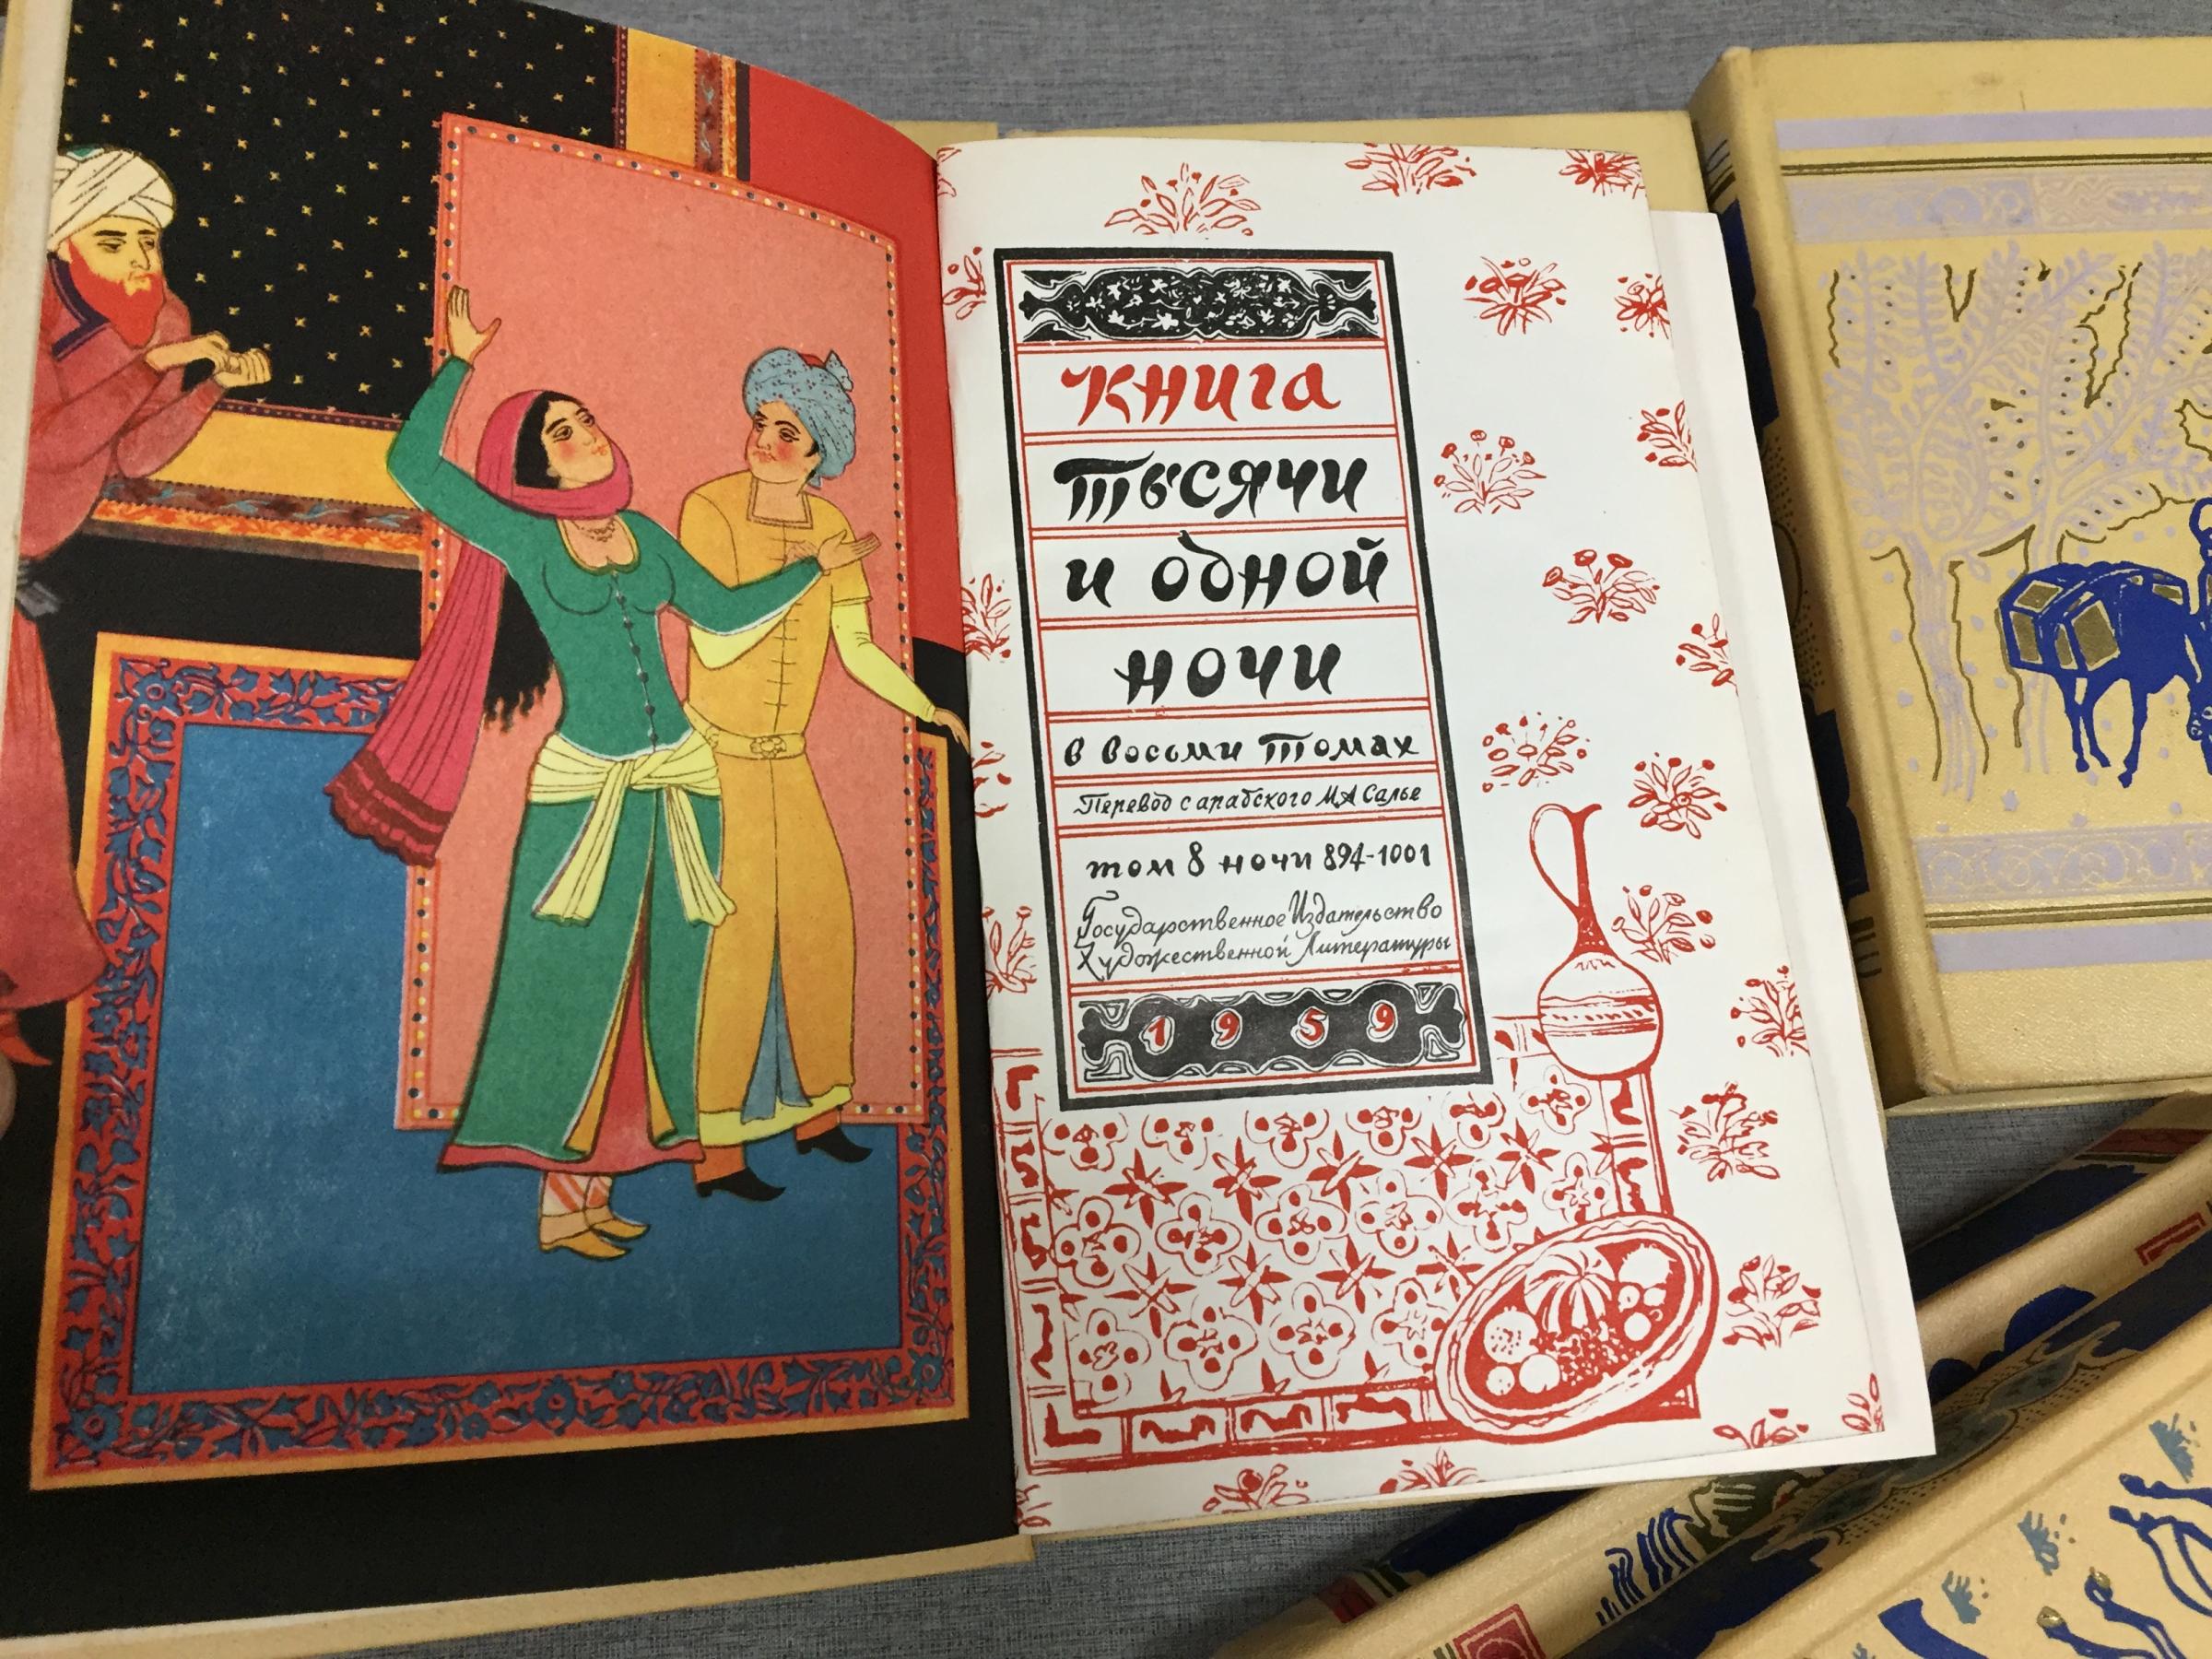 книга
тысячи
и одной
ночи
в восьми томах
Перевод с арабского М.А Салье
том 8 ночи 894-1001
Государственное Издательство
Художественной Литературы
1959